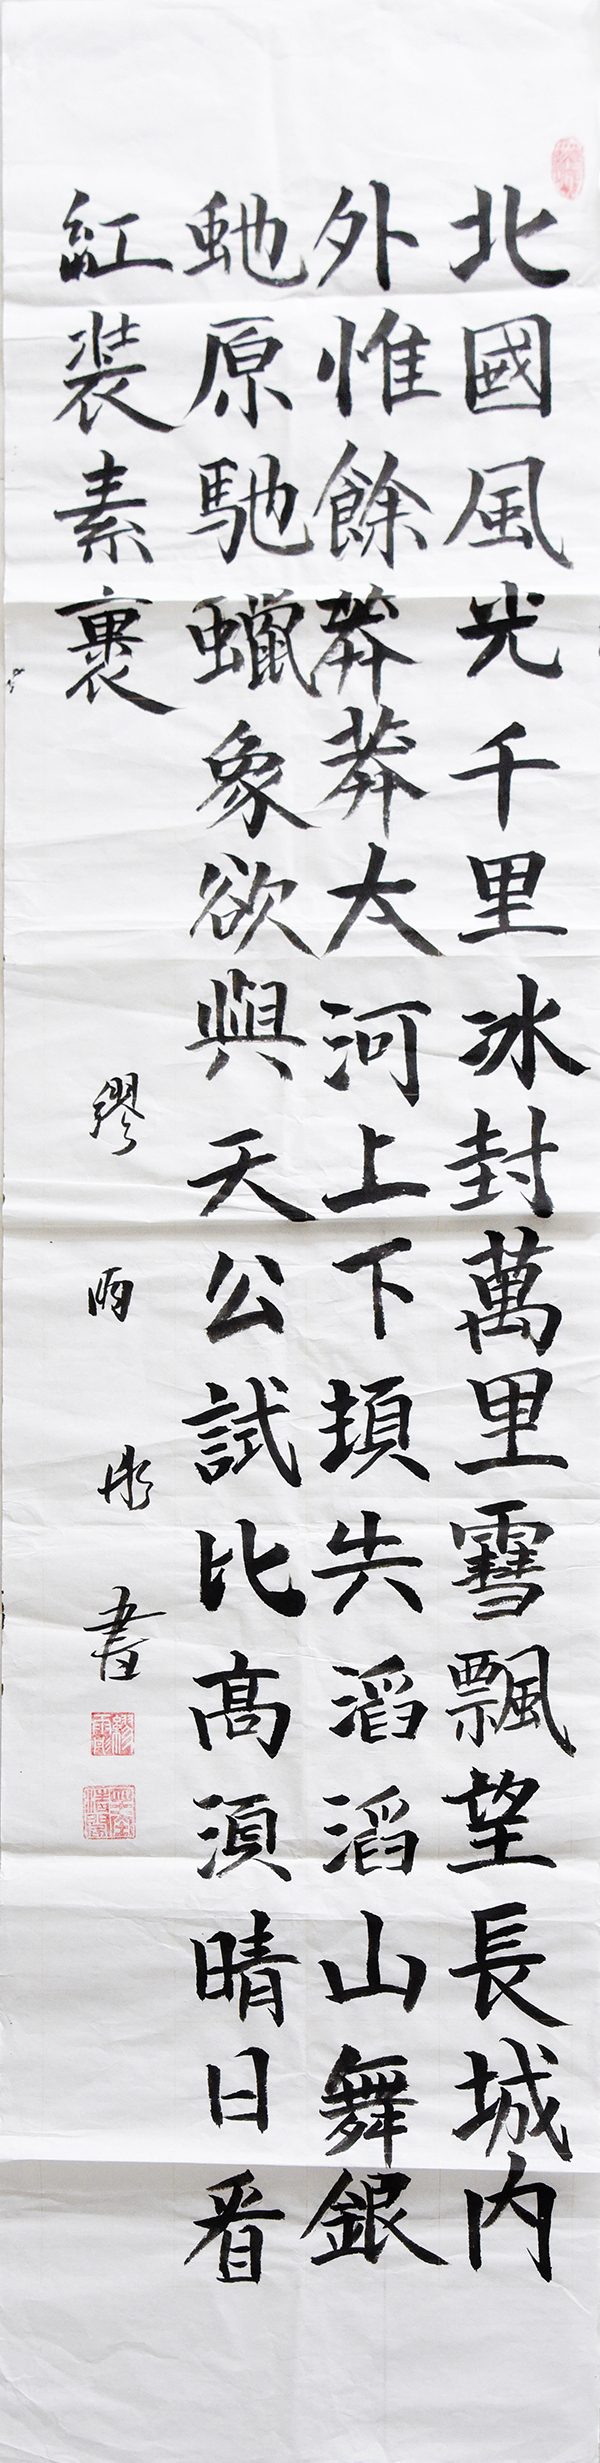 北國風光千里冰封萬里雪飄望長城内
外惟餘莽莽大河上下頓失滔滔山舞銀
虵原馳蠟象欲與天公試比高湏晴日看
紅裝素裹
繆雨彤書
繆雨彤